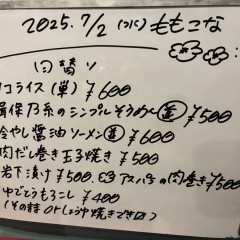 2025.7/2 (水) ももこな
日替り
コライス(単) ¥600
揖保乃糸のシンプルそうめん(並) ¥500
冷やし醤油ソーメン(並) ¥600
肉だし巻き玉子焼き ¥500
岩下漬け ¥500 アスパラの肉巻き ¥500
ゆでとうもろこし ¥400
(そのままOr しょうゆ焼きできます)